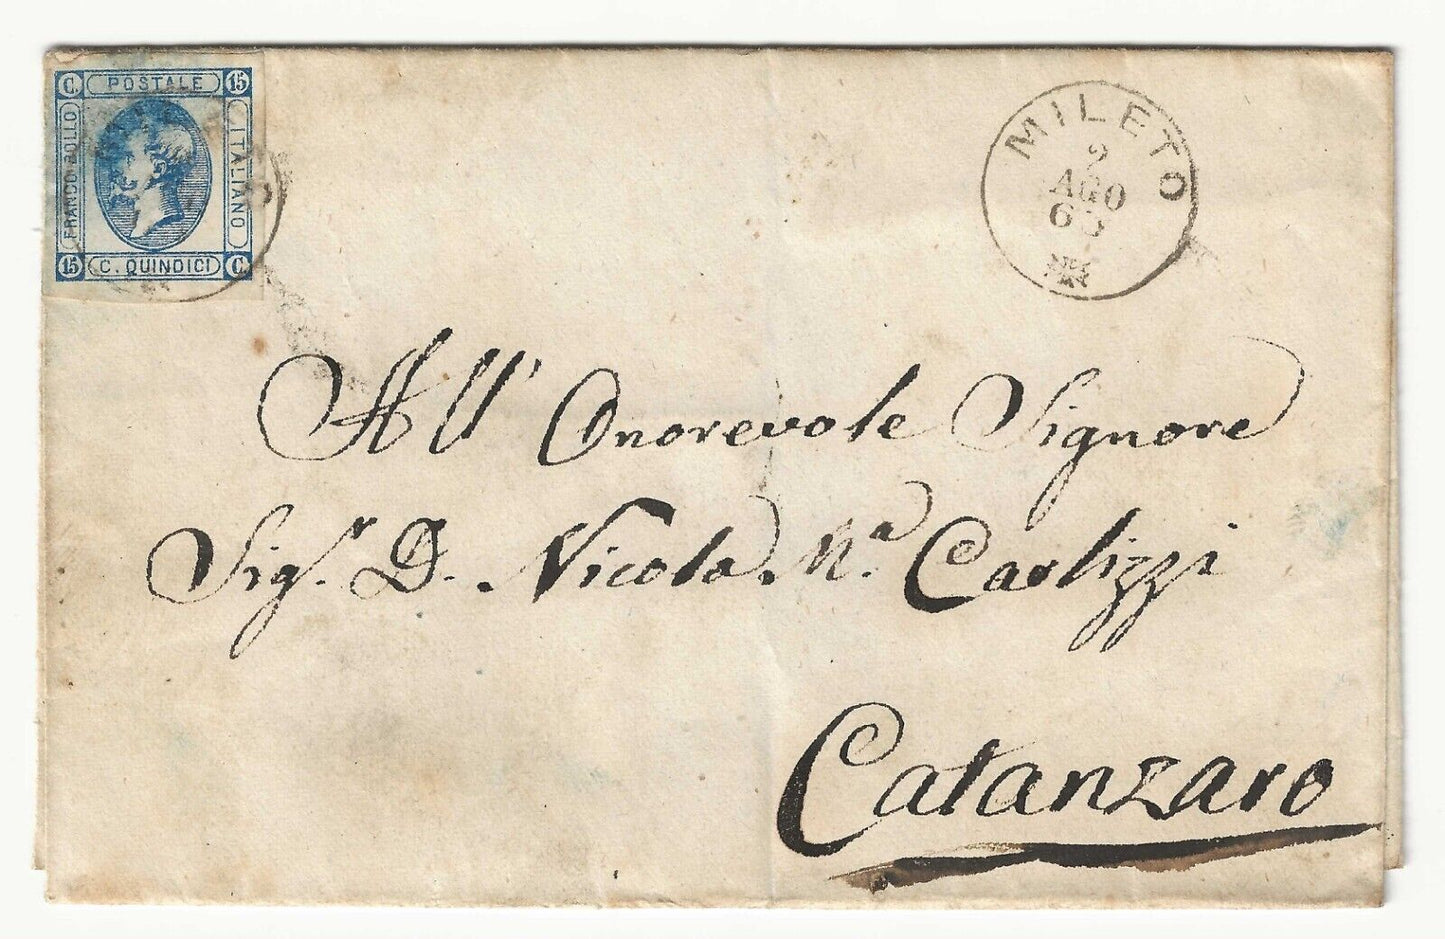 C. POSTALE 15
FRANCO BOLLO
ITALIANO
15 C. QUINDICI C.
MILETO
9
AGO
63
All' Onorevole Signore
Sig.r D. Nicola M.a Carlizzi
Catanzaro